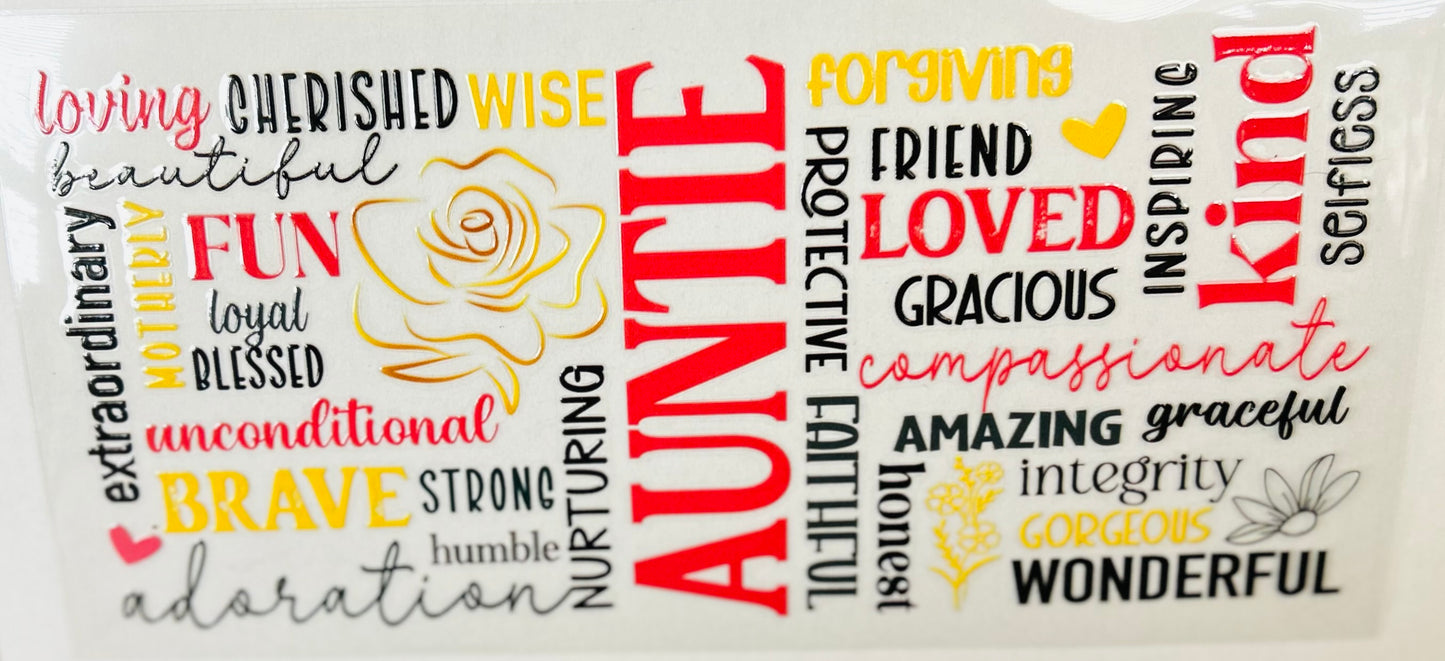 loving CHERISHED WISE
beautiful
extraordinary
MOTHERLY
FUN
loyal
BLESSED
unconditional
BRAVE
STRONG
humble
NURTURING
adoration
AUNTIE
forgiving
PROTECTIVE
FRIEND
LOVED
GRACIOUS
INSPIRING
kind
selfless
compassionate
FAITHFUL
AMAZING graceful
honest
integrity
GORGEOUS
WONDERFUL